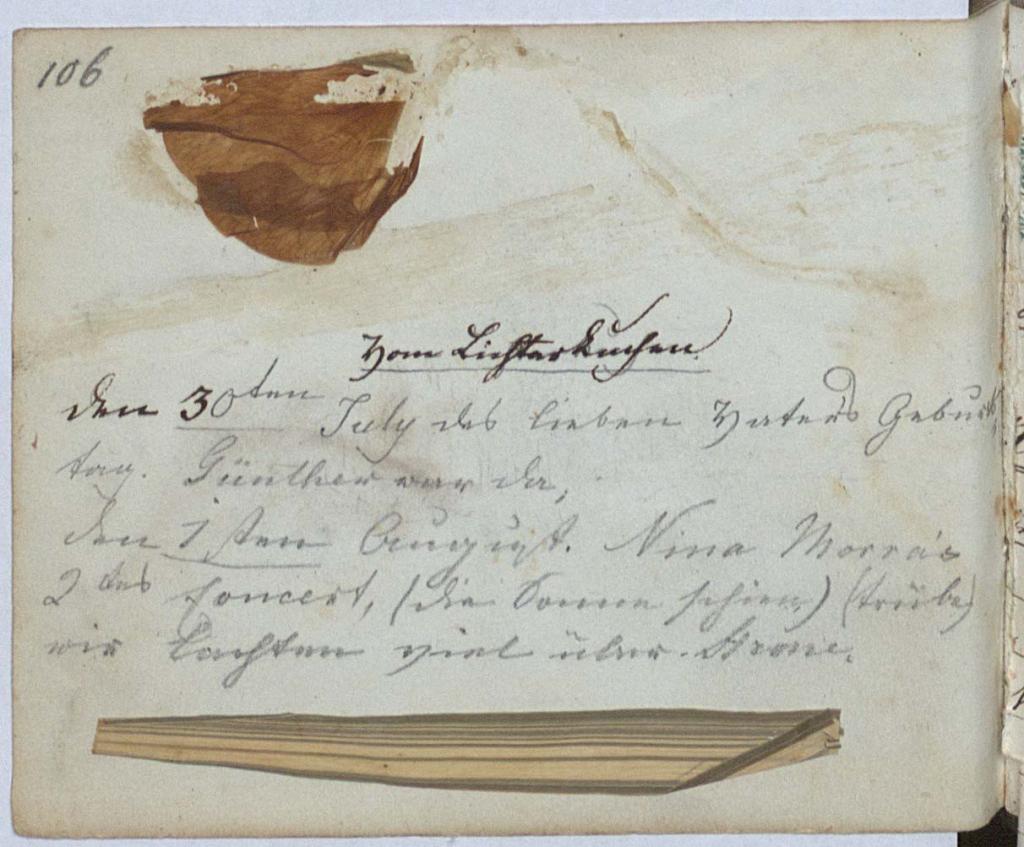 106
Vom Lichterkuchen.
den 30ten July des lieben Vaters Geburts
tag. Günther war da,
den 1sten August. Nina Morra's
2tes Concert, (die Sonne schien) (trübe)
wir lachten viel über